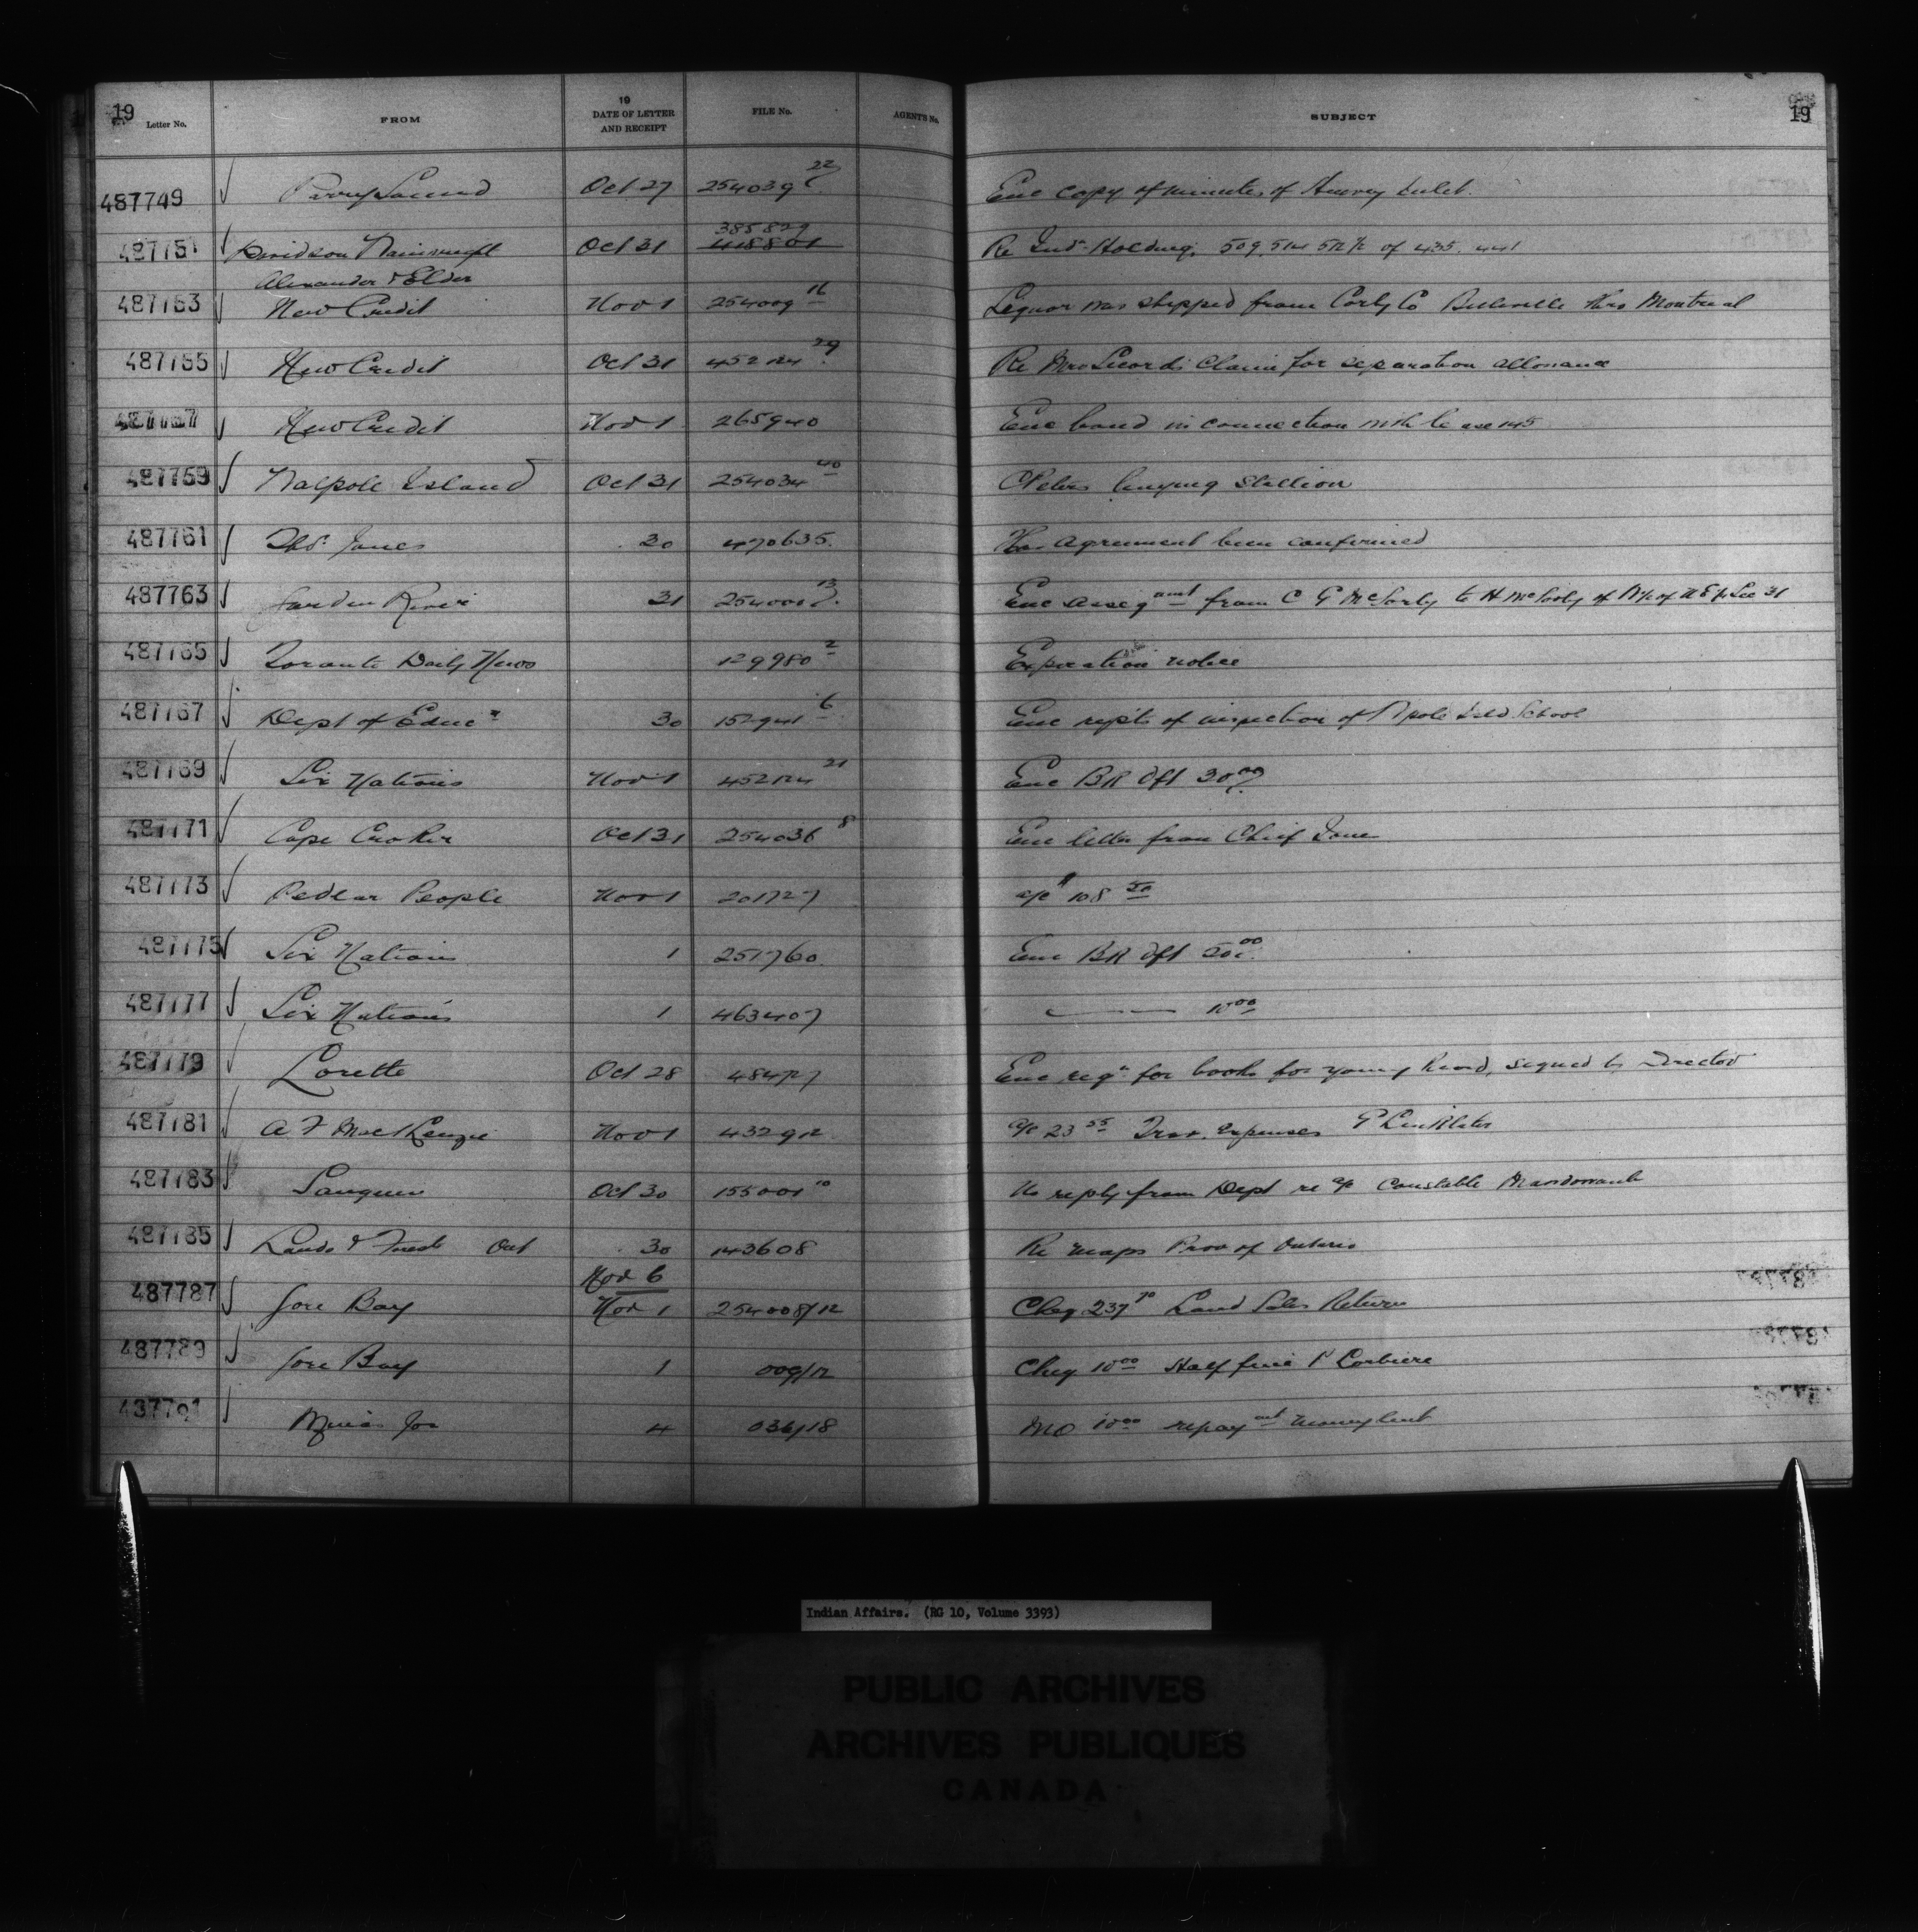 19 19
Letter No. FROM 19 DATE OF LETTER AND RECEIPT FILE No. AGENT'S No. SUBJECT
487749 Parry Sound Oct 27 254039 22 Enc copy of minutes of Inlet
385829
487751 Davidson Wainwright Oct 31 418801 Re Ind Holding, 509, 514 512 1/2 of 435. 441
Alexander & Elder
487753 New Credit Nov 1 254009 16 Liquor was shipped from Corby Co Belleville thro Montreal
487755 New Credit Oct 31 452124 29 Re Mrs Claim for separation allowance
487757 New Credit Nov 1 265940 Enc bond in connection with lease 145
487759 Walpole Island Oct 31 254034 40 Peters buying Stallion
487761 Jones 30 470635 Has agreement been confirmed
487763 Garden River 31 254000 13 Enc assigamt from C G McSorly to H McSorly of of Sec 31
487765 Toronto Daily News 129980 2 Expiration notice
487767 Dept of Educn 30 152941 6 Enc repts of inspection of Wpole Isld School
487769 Six Nations Nov 1 452124 21 Enc BR Dft 30 00
487771 Cape Croker Oct 31 254036 8 Enc letter from Chief Jones
487773 Pedlar People Nov 1 201727 a/c 108 50
487775 Six Nations 1 251760 Enc BR Dft 50 00
487777 Six Nations 1 463407 — — 10 00
487779 Lorette Oct 28 48477 Enc reqn for books for young signed by Director
487781 A F MacKenzie Nov 1 432912 a/c 23 55 Trav. expenses G Linklater
487783 Saugeen Oct 30 155001 10 No reply from Dept re a/c Constable
487785 Lands & Forests Ont 30 143608 Re maps Prov of Ontario
Nov 6
487787 Gore Bay Nov 1 254008/12 Cheq 237 70 Land Sales Return
487789 Gore Bay 1 009/12 Cheq 10 00 Half fine Corbiere
487791 Jos 4 036/18 MO 10 00 repayout money lent
Indian Affairs. (RG 10, Volume 3393)
PUBLIC ARCHIVES
ARCHIVES PUBLIQUES
CANADA